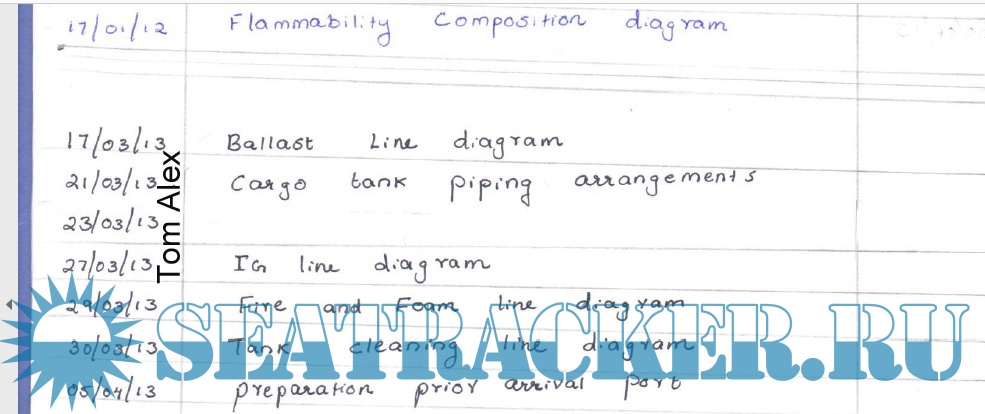 17/01/12 Flammability Composition diagram
17/03/13 Ballast Line diagram
21/03/13 Cargo tank piping arrangements
23/03/13
27/03/13 IG line diagram
29/03/13 Fire and Foam line diagram
30/03/13 Tank cleaning line diagram
05/04/13 preparation prior arrival port
Tom Alex
SEATRACKER.RU